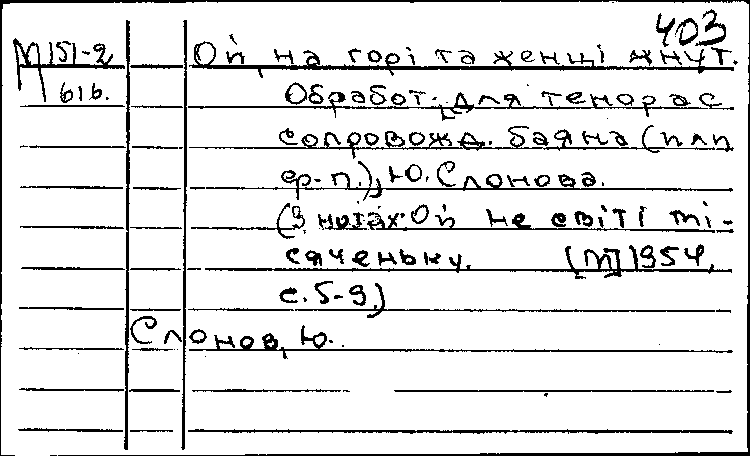 403
М151-2
616.
Ой, на горі та женці жнут.
Обработ. для тенора с
сопровожд. баяна (или
ф-п.), Ю. Слонова.
(В нотах: Ой не світі мі-
сяченьку. [М] 1954,
с. 5-9)
Слонов, Ю.